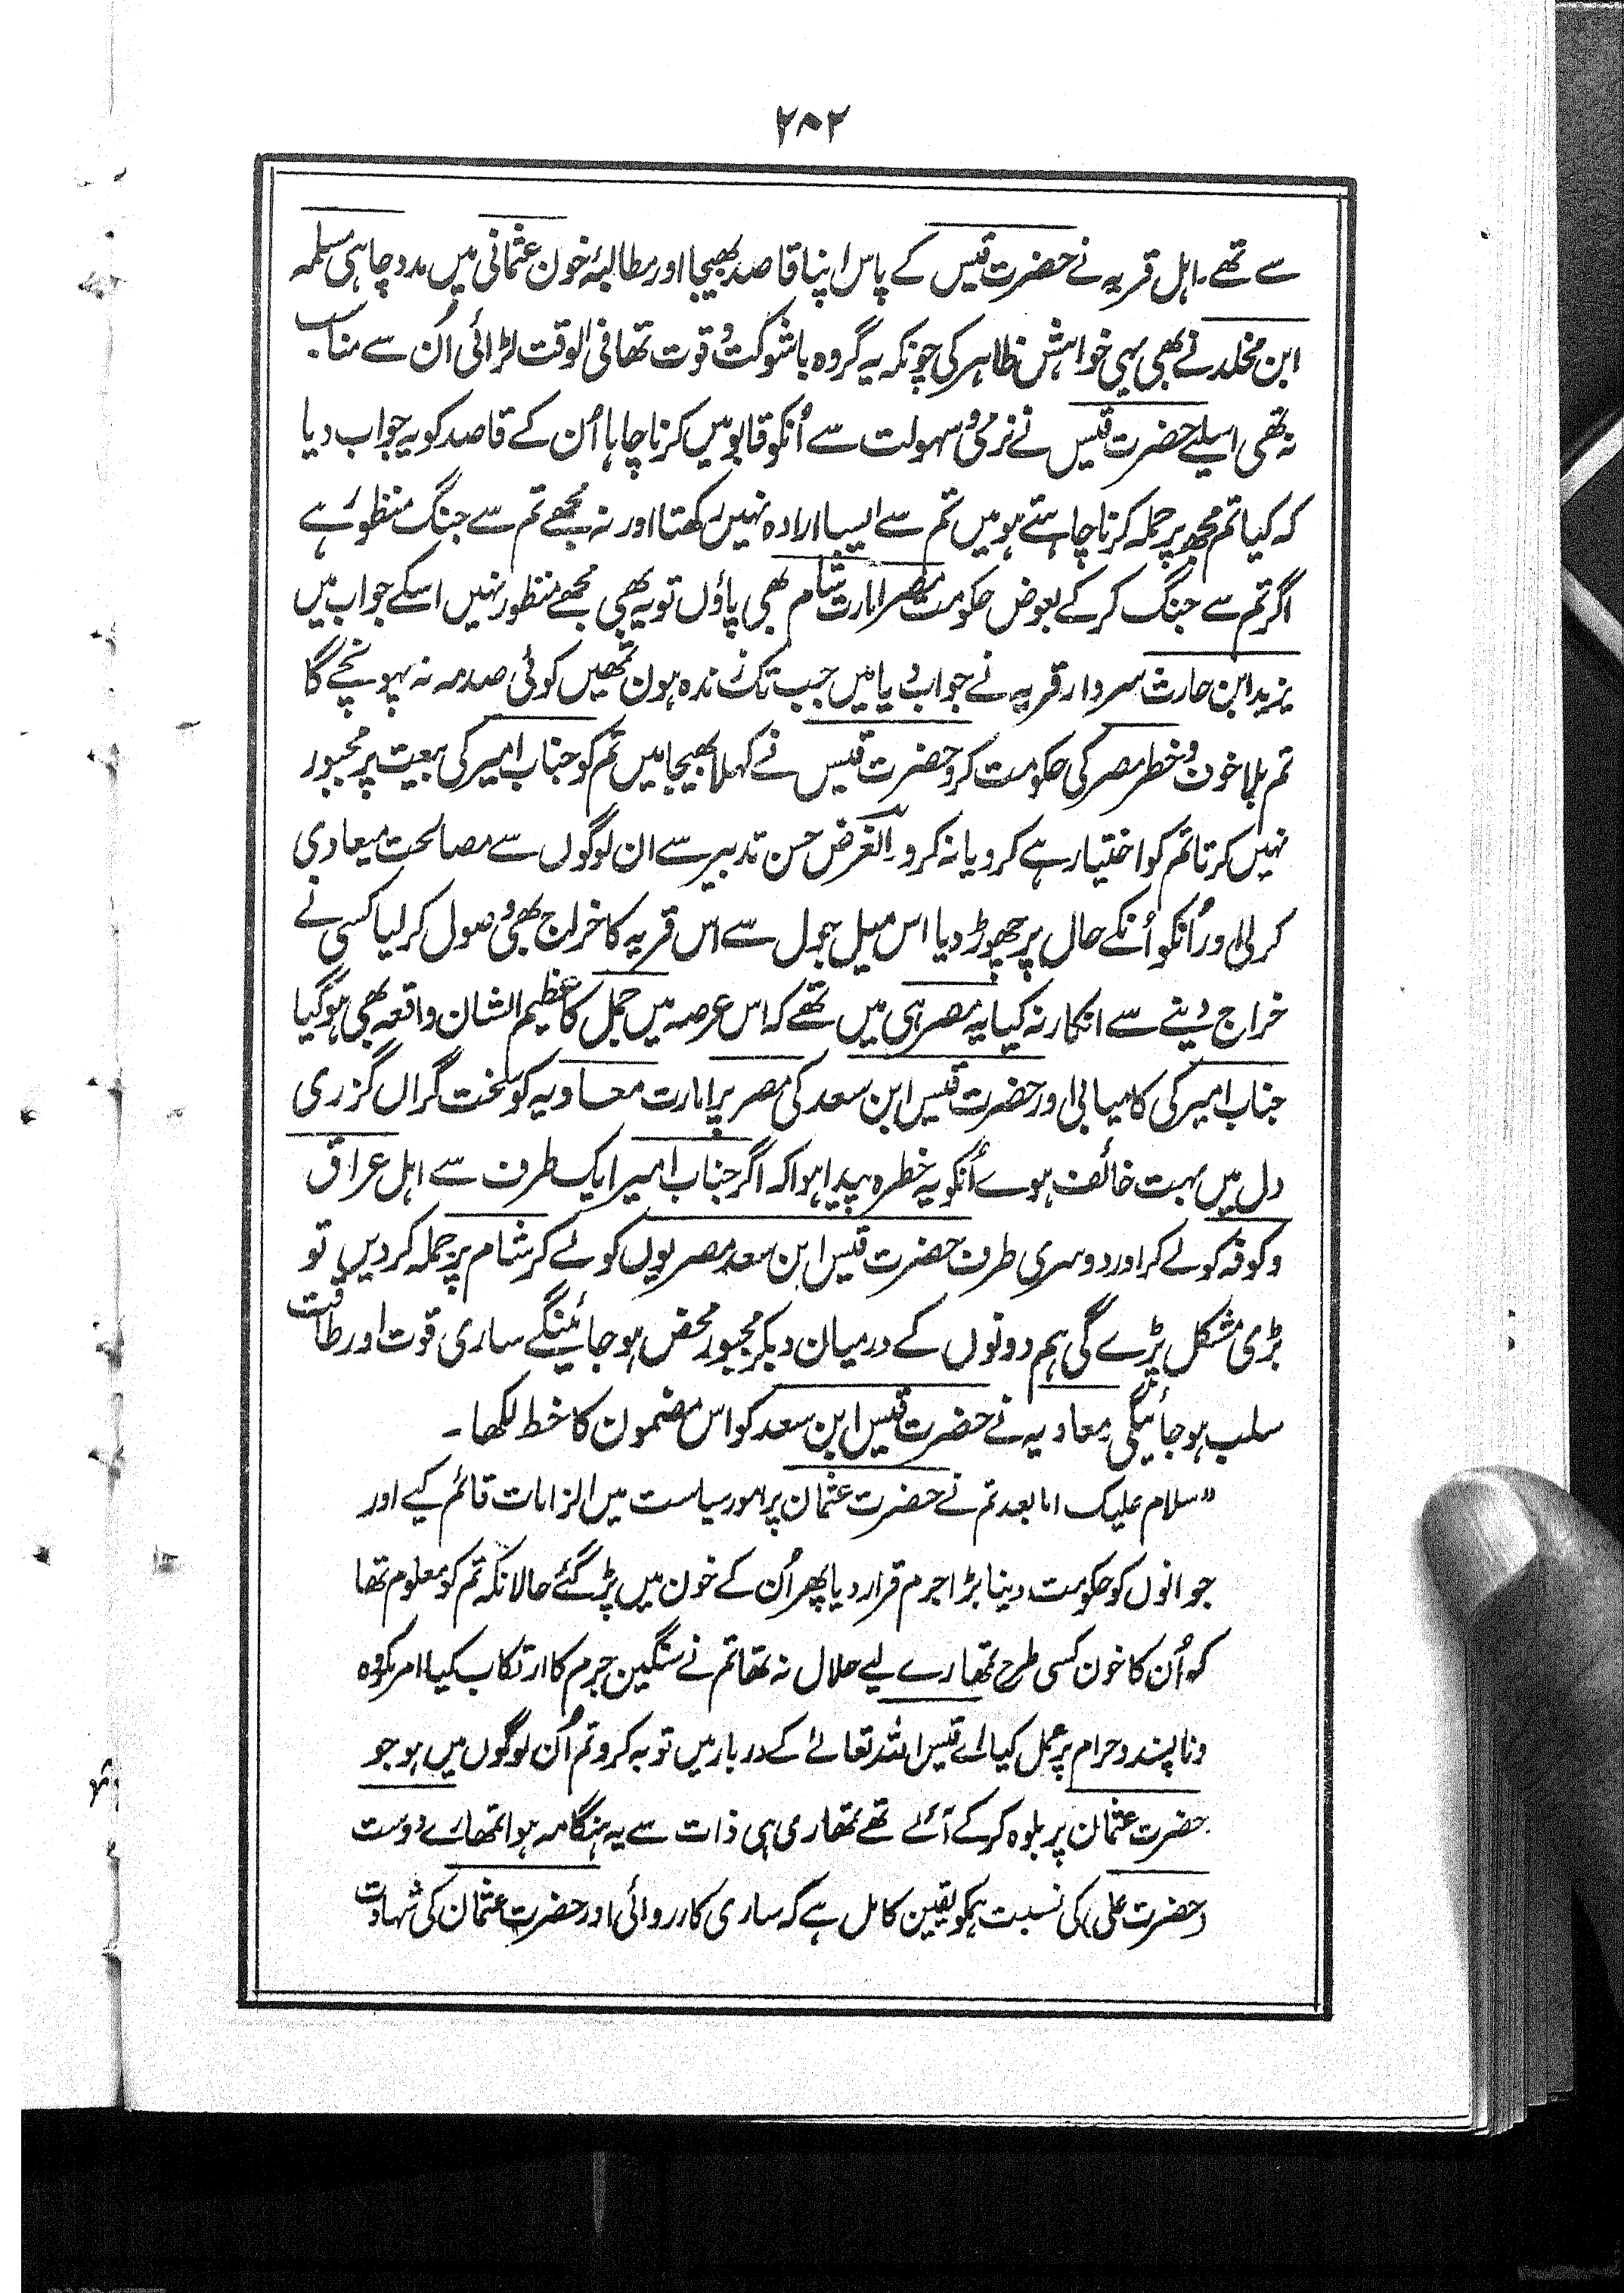 ۲۸۲
سے تھے۔ اہل قریہ نے حضرت قیس کے پاس اپنا قاصد بھیجا اور مطالبۂ خون عثمانی میں مدد چاہی مسلمہ
ابن مخلد نے بھی یہی خواہش ظاہر کی چونکہ یہ گروہ باشوکت و قوت تھا فی الوقت لڑائی اُن سے مناسب
نہ تھی اسلیے حضرت قیس نے نرمی و سہولت سے اُنکو قابو میں کرنا چاہا اُن کے قاصد کو یہ جواب دیا
کہ کیا تم مجھ پر حملہ کرنا چاہتے ہو میں تم سے ایسا ارادہ نہیں رکھتا اور نہ مجھے تم سے جنگ منظور ہے
اگر تم سے جنگ کر کے بعوض حکومت مصر امارت شام بھی پاؤں تو یہ بھی مجھے منظور نہیں اسکے جواب میں
یزید ابن حارث سردار قریہ نے جواب دیا میں جب تک زندہ ہون تمھیں کوئی صدمہ نہ پہونچے گا
تم بلا خوف و خطر مصر کی حکومت کرو حضرت قیس نے کہلا بھیجا میں تم کو جناب امیر کی بیعت پر مجبور
نہیں کرتا تم کو اختیار ہے کرو یا نہ کرو۔ الغرض حسن تدبیر سے ان لوگوں سے مصالحت میعادی
کر لی اور اُنکو اُنکے حال پر چھوڑ دیا اس میل جول سے اس قریہ کا خراج بھی وصول کر لیا کسی نے
خراج دینے سے انکار نہ کیا یہ مصر ہی میں تھے کہ اس عرصہ میں جمل کا عظیم الشان واقعہ بھی ہو گیا
جناب امیر کی کامیابی اور حضرت قیس ابن سعد کی مصر پر امارت معاویہ کو سخت گراں گزری
دل میں بہت خائف ہوے اُنکو یہ خطرہ پیدا ہوا کہ اگر جناب امیر ایک طرف سے اہل عراق
و کوفہ کو لے کر اور دوسری طرف حضرت قیس ابن سعد مصریوں کو لے کر شام پر حملہ کر دیں تو
بڑی مشکل پڑے گی ہم دونوں کے درمیان دبکر مجبور محض ہو جائینگے ساری قوت اور طاقت
سلب ہو جائیگی۔ معاویہ نے حضرت قیس ابن سعد کو اس مضمون کا خط لکھا۔
"سلام علیک اما بعد تم نے حضرت عثمان پر امور سیاست میں الزامات قائم کیے اور
جوانوں کو حکومت دینا بڑا جرم قرار دیا پھر اُن کے خون میں پڑ گئے حالانکہ تم کو معلوم تھا
کہ اُن کا خون کسی طرح تمھارے لیے حلال نہ تھا تم نے سنگین جرم کا ارتکاب کیا امر مکروہ
و ناپسند و حرام پر عمل کیا اے قیس اللہ تعالےٰ کے دربار میں توبہ کرو تم اُن لوگوں میں ہو جو
حضرت عثمان پر بلوہ کر کے آئے تھے تمھاری ہی ذات سے یہ ہنگامہ ہوا تمھارے دوست
(حضرت علی) کی نسبت ہمکو یقین کامل ہے کہ ساری کارروائی اور حضرت عثمان کی شہادت